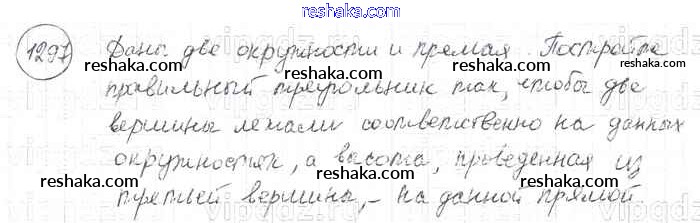 reshaka.com
1297 Даны две окружности и прямая. Постройте
reshaka.com reshaka.com reshaka.com
правильный треугольник так, чтобы две
вершины лежали соответственно на данных
reshaka.com reshaka.com reshaka.com
окружностях, а высота, проведенная из
reshaka.com reshaka.com reshaka.com
третьей вершины, – на данной прямой
reshaka.com